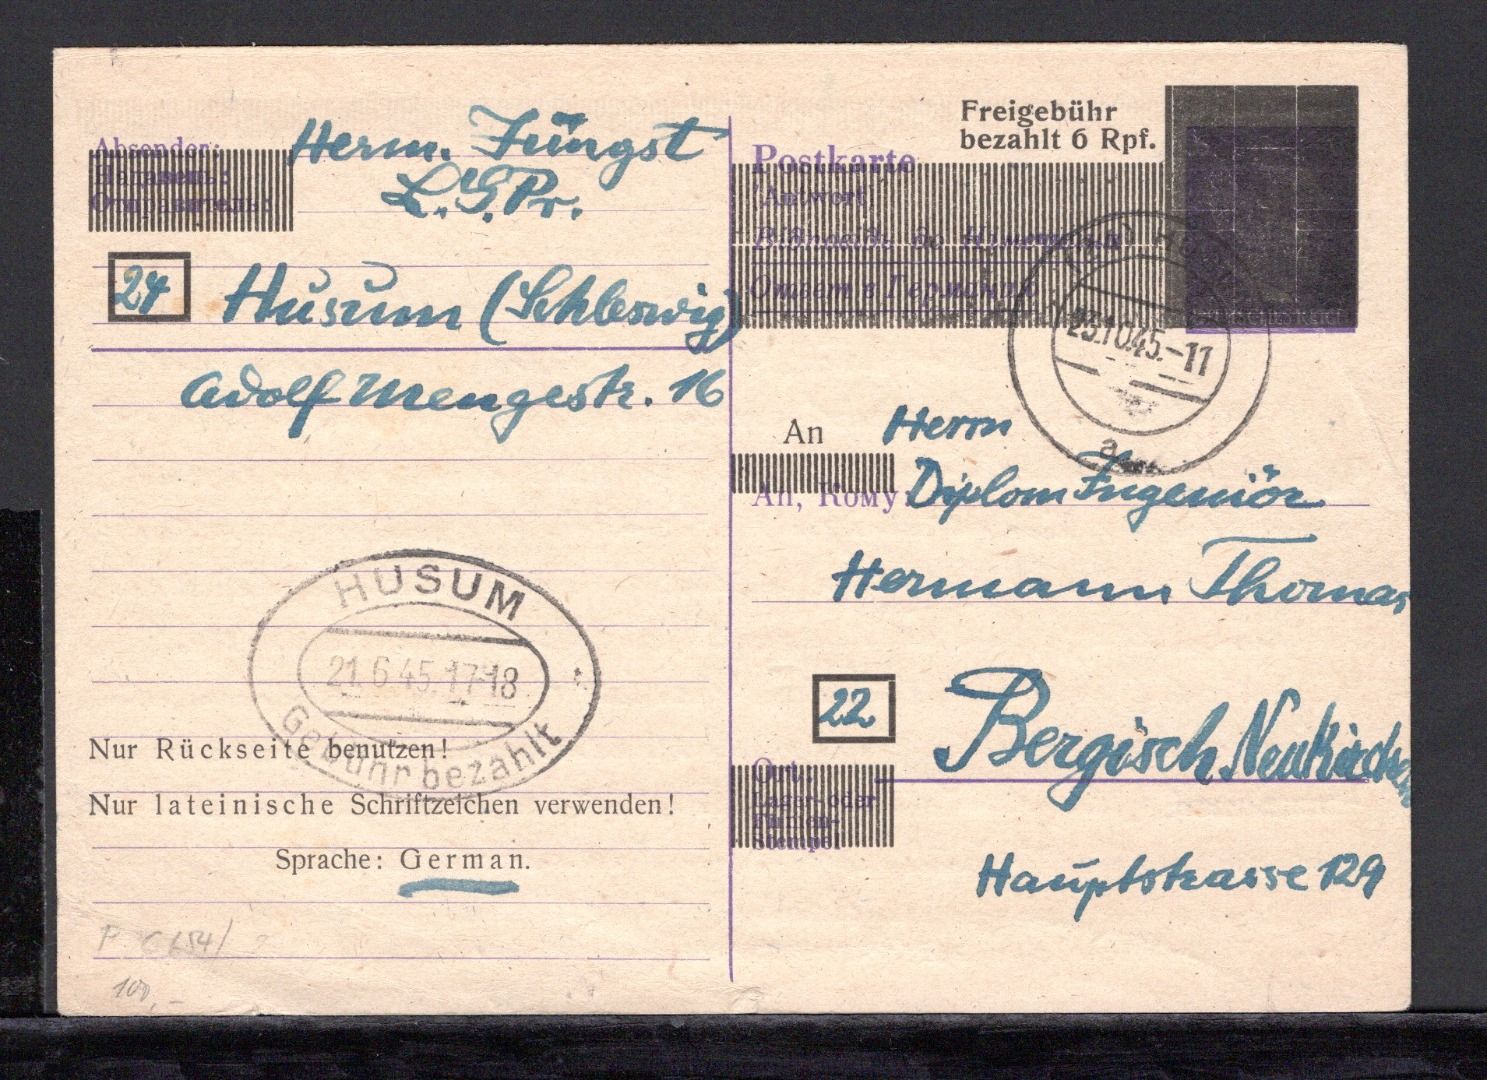 Freigebühr
bezahlt 6 Rpf.
Absender:
Надавець:
Отправитель:
Herm. Jüngst
L.G.Pr.
24
Husum (Schleswig)
Adolf Mengestr. 16
Postkarte
Antwort
Відповідь до Німеччини
Ответ в Германию
23.10.45.-11
a
An
Herrn
An, Кому:
Diplom Ingeniör
Hermann Thomas
22
Bergisch Neukirchen
Ort:
Lager- oder
Firmen-
Stempel
Hauptstrasse 129
HUSUM
21.6.45.17-18
Gebühr bezahlt
Nur Rückseite benutzen!
Nur lateinische Schriftzeichen verwenden!
Sprache: German.
P
100,-